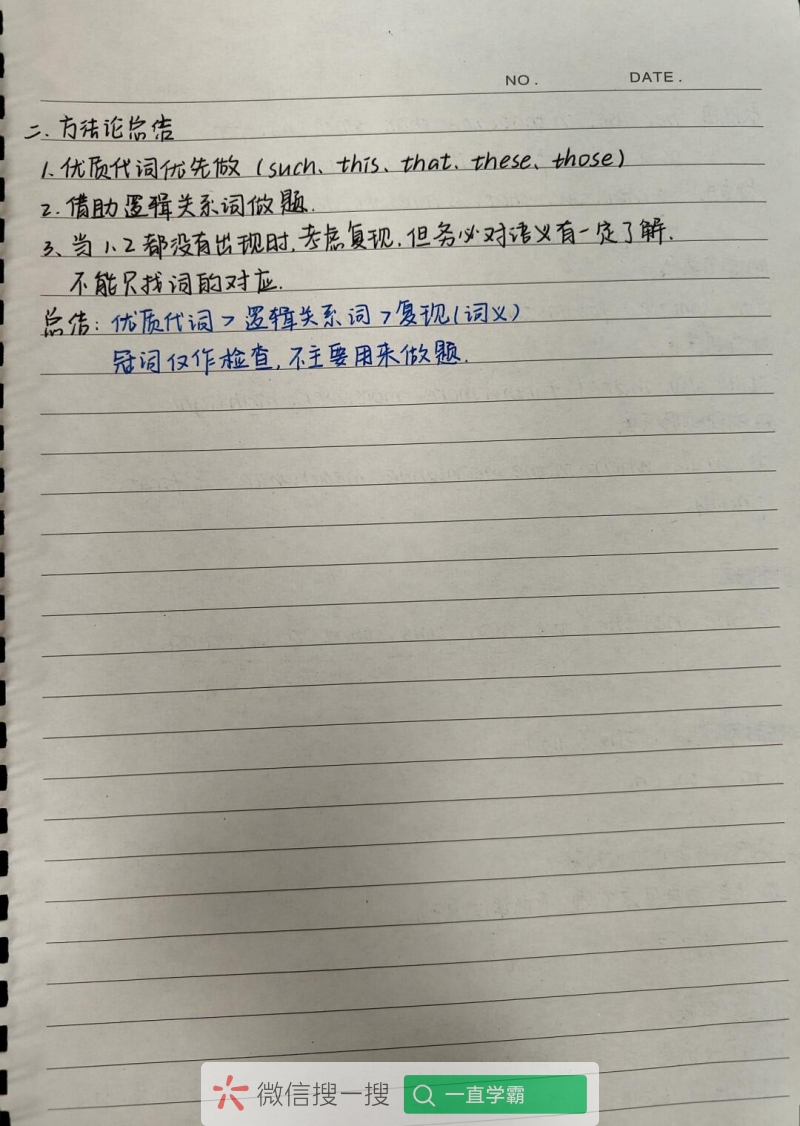 NO.
DATE.
二.方法论总结
1.优质代词优先做（such、this、that、these、those）
2.借助逻辑关系词做题.
3、当1、2都没有出现时,考虑复现,但务必对语义有一定了解.
不能只找词的对应.
总结：优质代词>逻辑关系词>复现(词义)
冠词仅作检查,不主要用来做题.
微信搜一搜
一直学霸